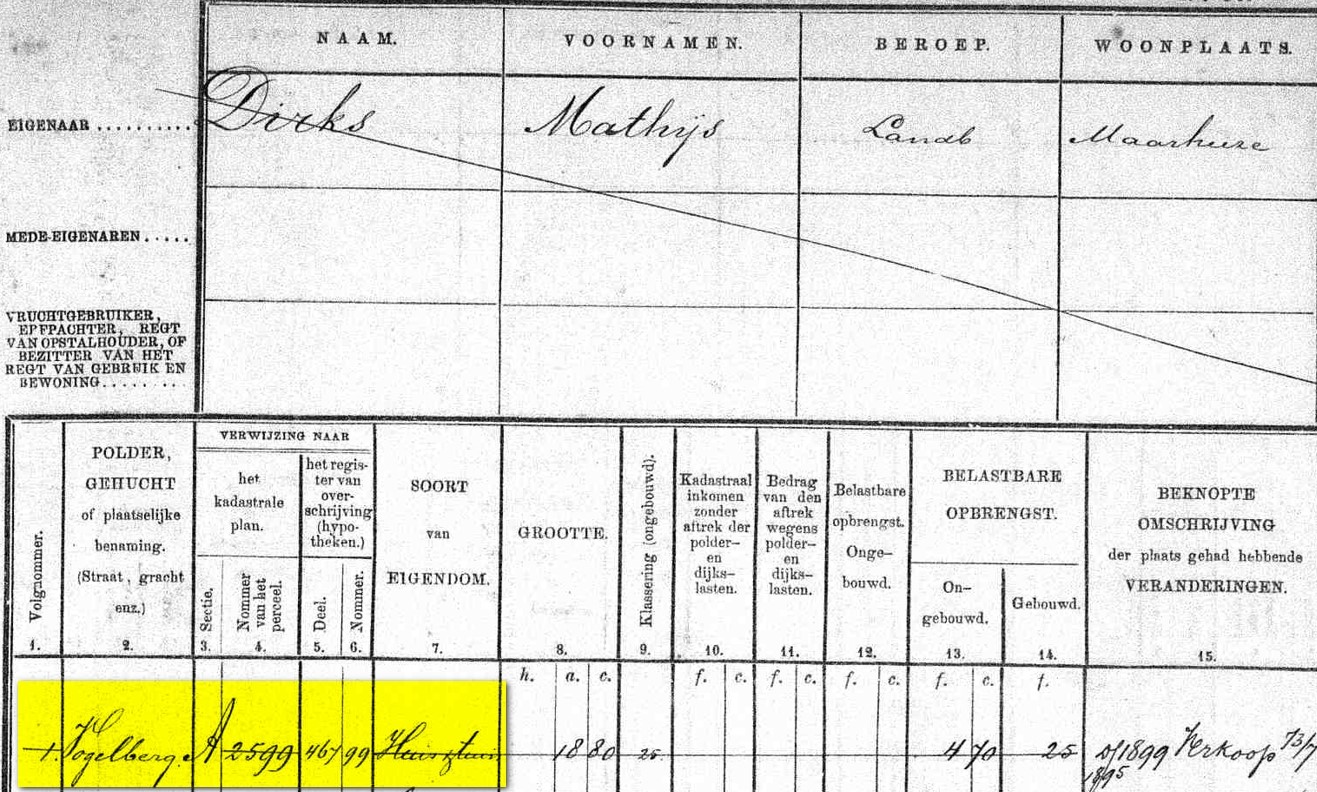 NAAM. VOORNAMEN. BEROEP. WOONPLAATS.
EIGENAAR .......... Dirks Mathijs Landb Maarheeze
MEDE-EIGENAREN .....
VRUCHTGEBRUIKER,
EPFPACHTER, REGT
VAN OPSTALHOUDER, OF
BEZITTER VAN HET
REGT VAN GEBRUIK EN
BEWONING........
Volgnommer.
1.
POLDER,
GEHUCHT
of plaatselijke
benaming.
(Straat, gracht
enz.)
2.
VERWIJZING NAAR
het
kadastrale
plan.
Sectie.
3.
Nommer
van het
perceel.
4.
het regis-
ter van
over-
schrijving
(hypo-
theken.)
Deel.
5.
Nommer.
6.
SOORT
van
EIGENDOM.
7.
GROOTTE.
8.
Klassering (ongebouwd).
9.
Kadastraal
inkomen
zonder
aftrek der
polder-
en
dijks-
lasten.
10.
Bedrag
van den
aftrek
wegens
polder-
en
dijks-
lasten.
11.
Belastbare
opbrengst.
Onge-
bouwd.
12.
BELASTBARE
OPBRENGST.
On-
gebouwd.
13.
Gebouwd.
14.
BEKNOPTE
OMSCHRIJVING
der plaats gehad hebbende
VERANDERINGEN.
15.
h. a. c. f. c. f. c. f. c. f. c. f.
1. Vogelberg A 2599 467 99 Huis 18 80 25 4 70 25 1899 Verkoop 73/7
1895